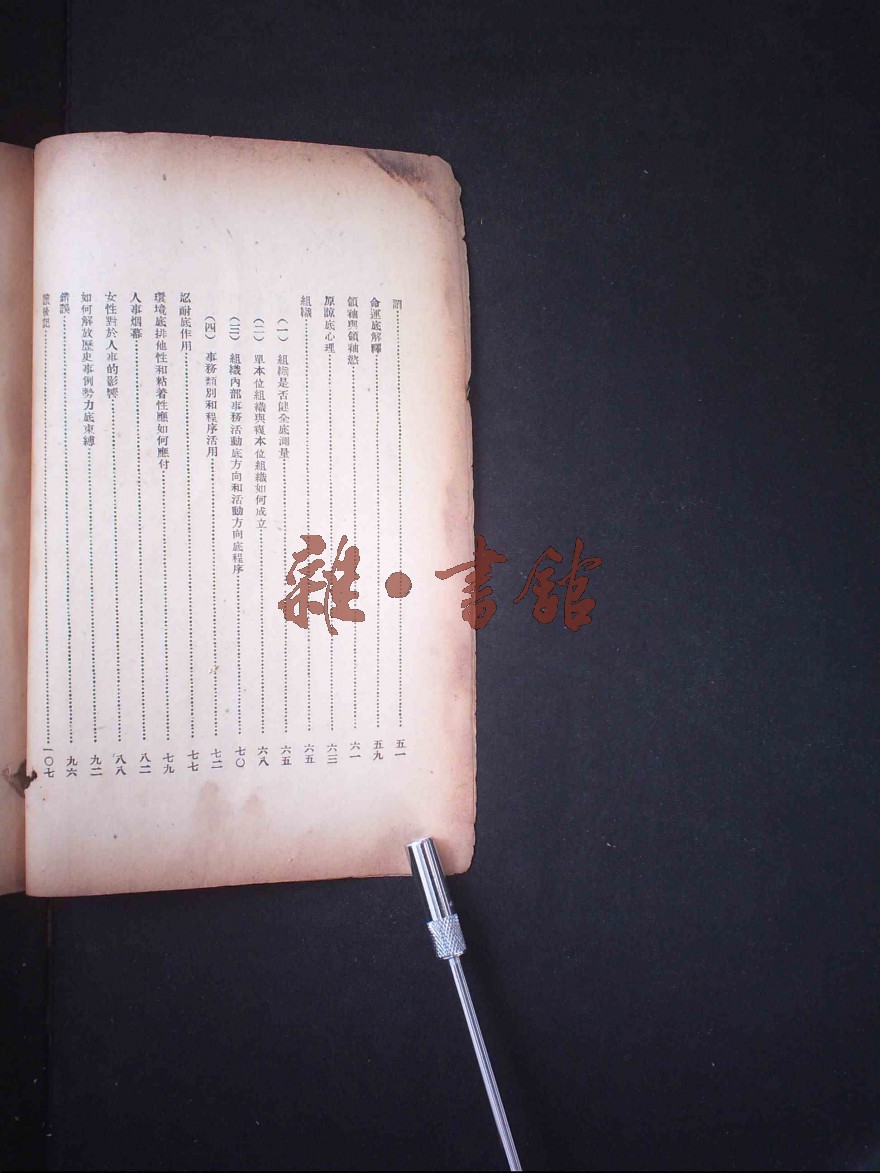 謂……五一
命運底解釋……五九
領袖與領袖慾……六一
原諒底心理……六三
組織……六五
(一) 組織是否健全底測量……六五
(二) 單本位組織與複本位組織如何成立……六八
(三) 組織內部事務活動底方向和活動方向底程序……七〇
(四) 事務類別和程序活用……七二
忍耐底作用……七七
環境底排他性和粘着性應如何應付……七九
人事烟幕……八二
女性對於人事的影響……八八
如何解放歷史事例勢力底束縛……九二
錯誤……九六
讀後記……一〇七
雜·書館